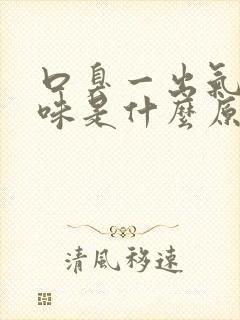 口臭一出氣
味是什麼原
清風移速